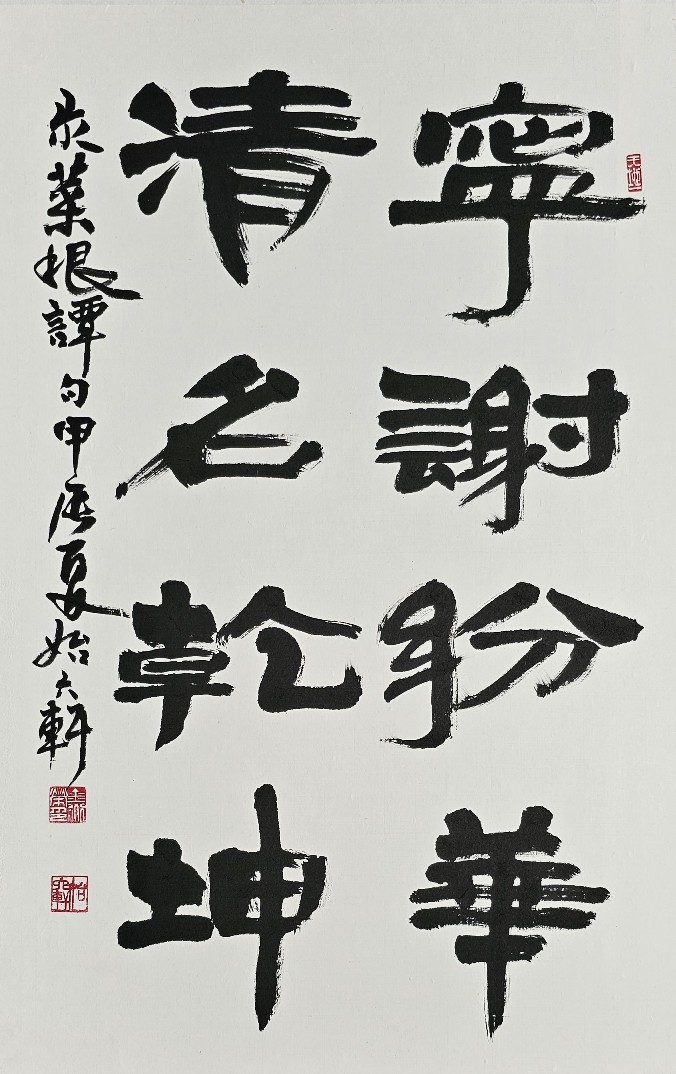 寧謝紛華
清名乾坤
录菜根譚句甲辰夏怡六軒